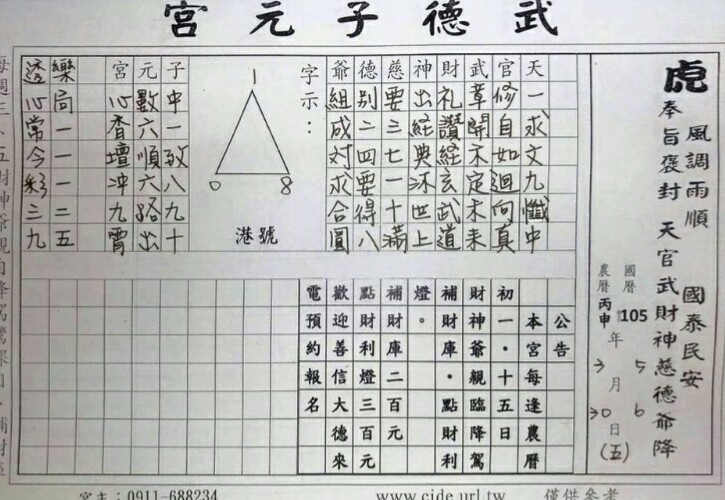 武德子元宮
虎
風調雨順 國泰民安
奉旨褒封 天官武財神慈德爺降
國曆105年5月6日(五)
農曆丙申 3 30
天一求文九懺中
官修自如迴向真
武章開不定未來
財礼讚經玄武道
神出經典环世上
慈要三七一十滿
德別二四要得八
爺組成对求合圓
字示：
1
0 8
港號
子中一致八九十
元數六順六路出
宮心香壇冲九霄
樂局一一一二五
透心常今彩三九
公告
本宮每逢農曆
初一・十五日
財神爺親臨降駕
補財庫・點財利
燈。
補財庫二百元
點財利燈三百元
歡迎善信大德來
電預約報名
每週三、五財神爺親自降駕
宮主：0911-688234
www.cide.url.tw
僅供參考